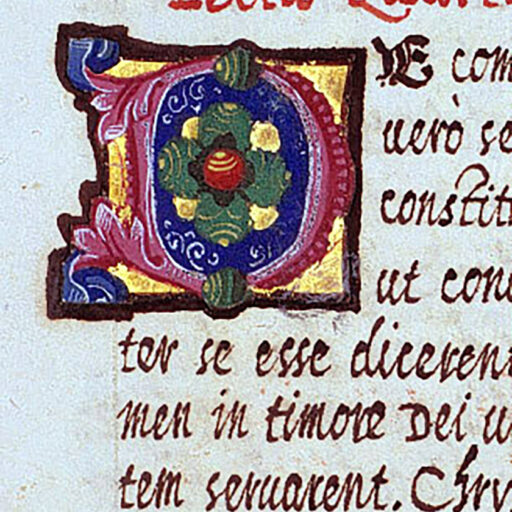 Lectio Quart
DE com
uerò se
constit
ut conc
ter se esse dicerent
men in timore Dei u
tem seruarent. Chry